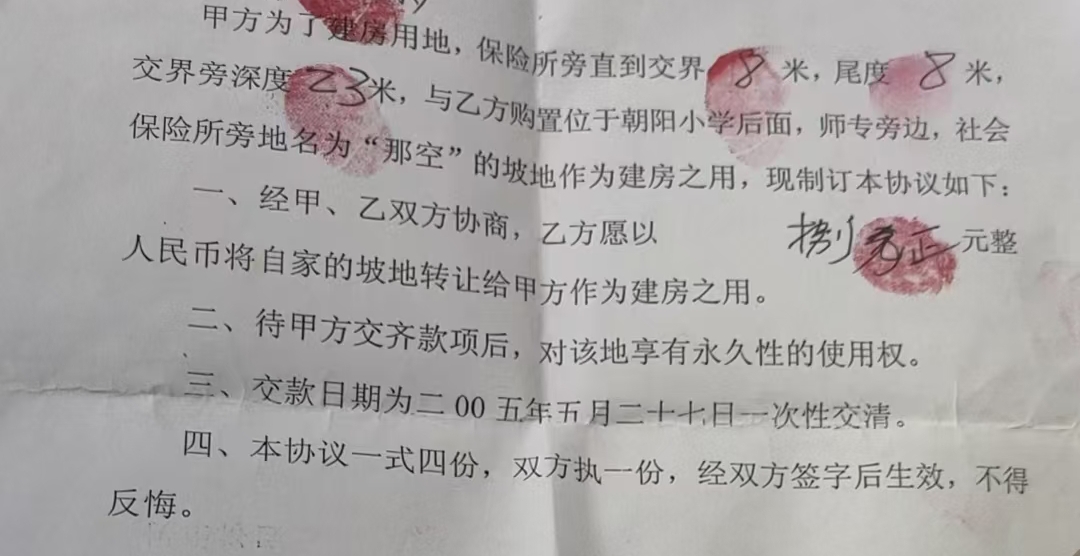 甲方为了建房用地，保险所旁直到交界 8 米，尾度 8 米，
交界旁深度 23 米，与乙方购置位于朝阳小学后面，师专旁边，社会
保险所旁地名为“那空”的坡地作为建房之用，现制订本协议如下：
一、经甲、乙双方协商，乙方愿以 捌元正 元整
人民币将自家的坡地转让给甲方作为建房之用。
二、待甲方交齐款项后，对该地享有永久性的使用权。
三、交款日期为二00五年五月二十七日一次性交清。
四、本协议一式四份，双方执一份，经双方签字后生效，不得
反悔。